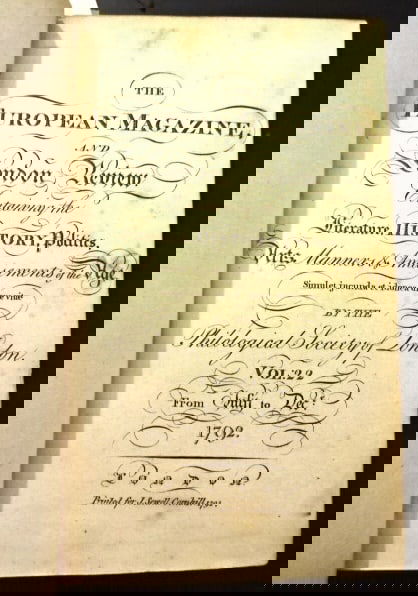 THE
EUROPEAN MAGAZINE,
AND
London Review
Containing the
Literature, HISTORY, Politics,
Arts, Manners & Amusements of the Age.
Simul et jucunda et idonea dicere vitæ
BY THE
Philological Society of London.
VOL. 22
From July to Decr.
1792.
London
Printed for J. Sewell Cornhill, 1792